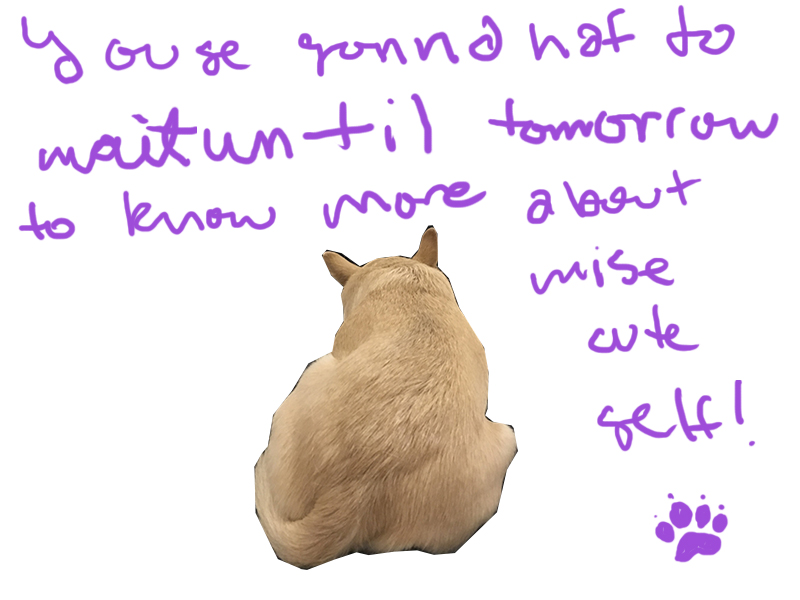 Youse gonna haf to
wait until tomorrow
to know more about
mise
cute
self!